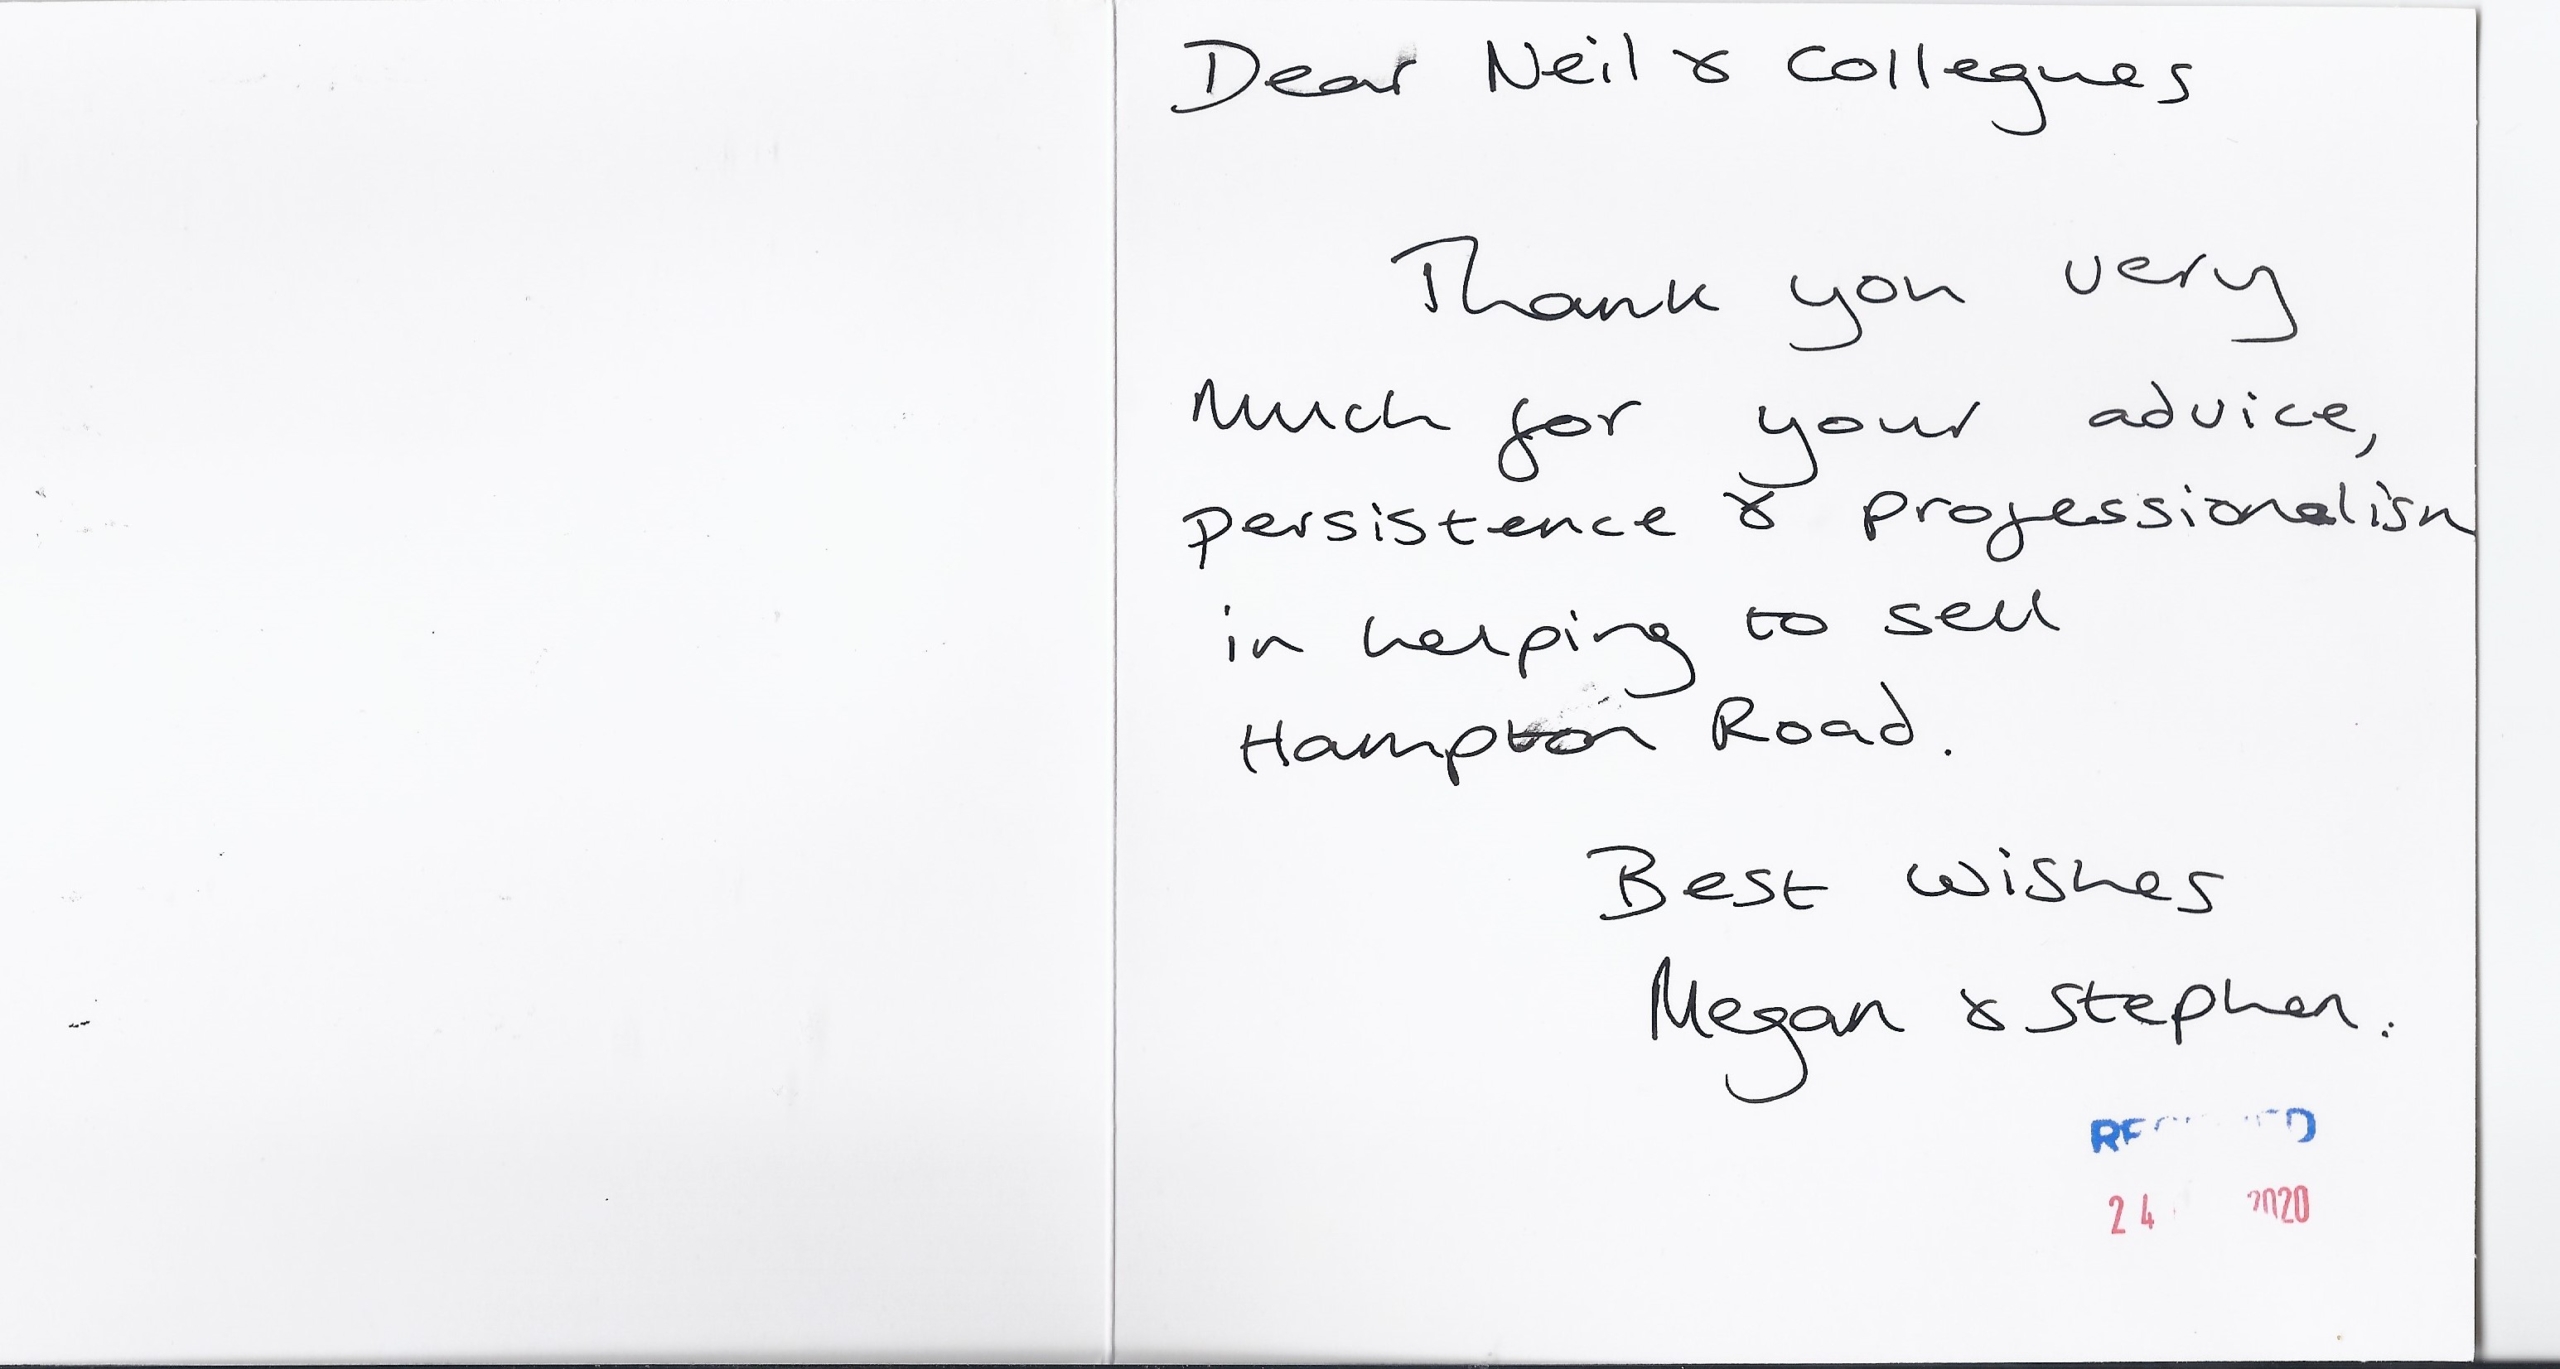 Dear Neil & Collegues
Thank you very
Much for your advice,
persistence & professionalism
in helping to sell
Hampton Road.
Best wishes
Megan & Stephen.
RECEIVED
24 2020